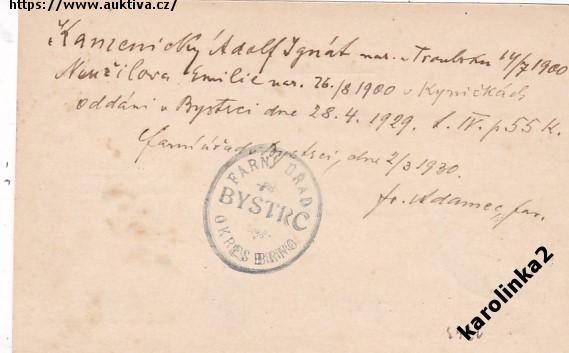 https://www.auktiva.cz/
Kamenický Adolf Ignát nar. v Troubsku 14/7 1900
Neužilova Emilie nar. 26/8 1900 v Kyničkách
oddáni v Bystrci dne 28. 4. 1929. t. IV. p 55 K.
Farní úřad v Bystrci, dne 2/3 1930.
fr. Adamec, far.
FARNÍ ÚŘAD
BYSTRC
OKRES BRNO
karolinka2